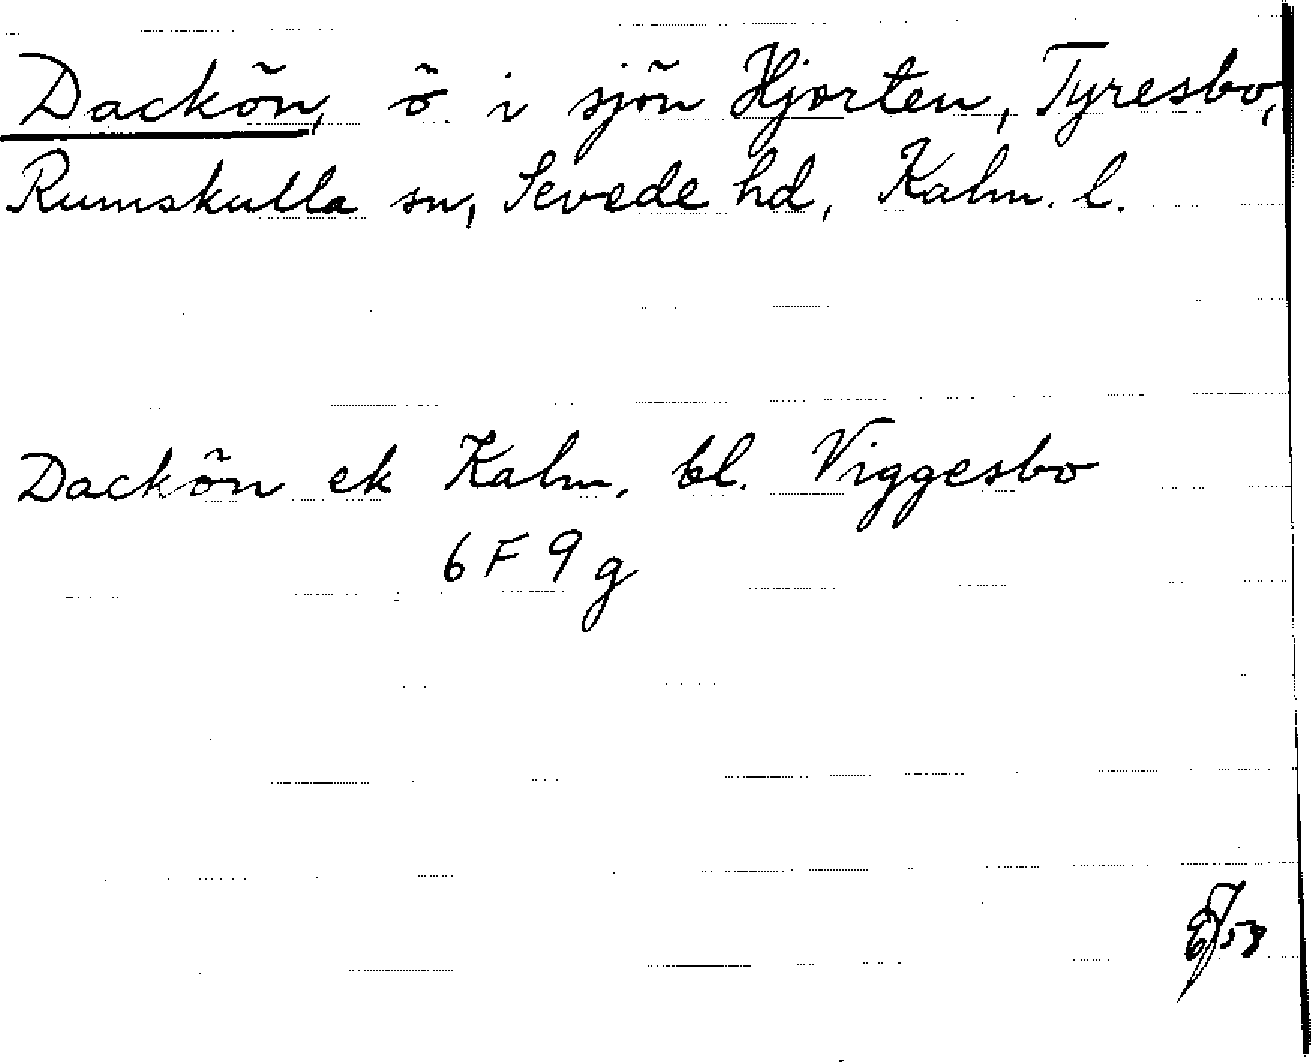 Dackön, ö i sjön Hjorten, Tyresbo,
Rumskulla sn, Sevede hd, Kalm. l.
Dackön ek Kalm. bl. Viggesbo
6 F 9 g